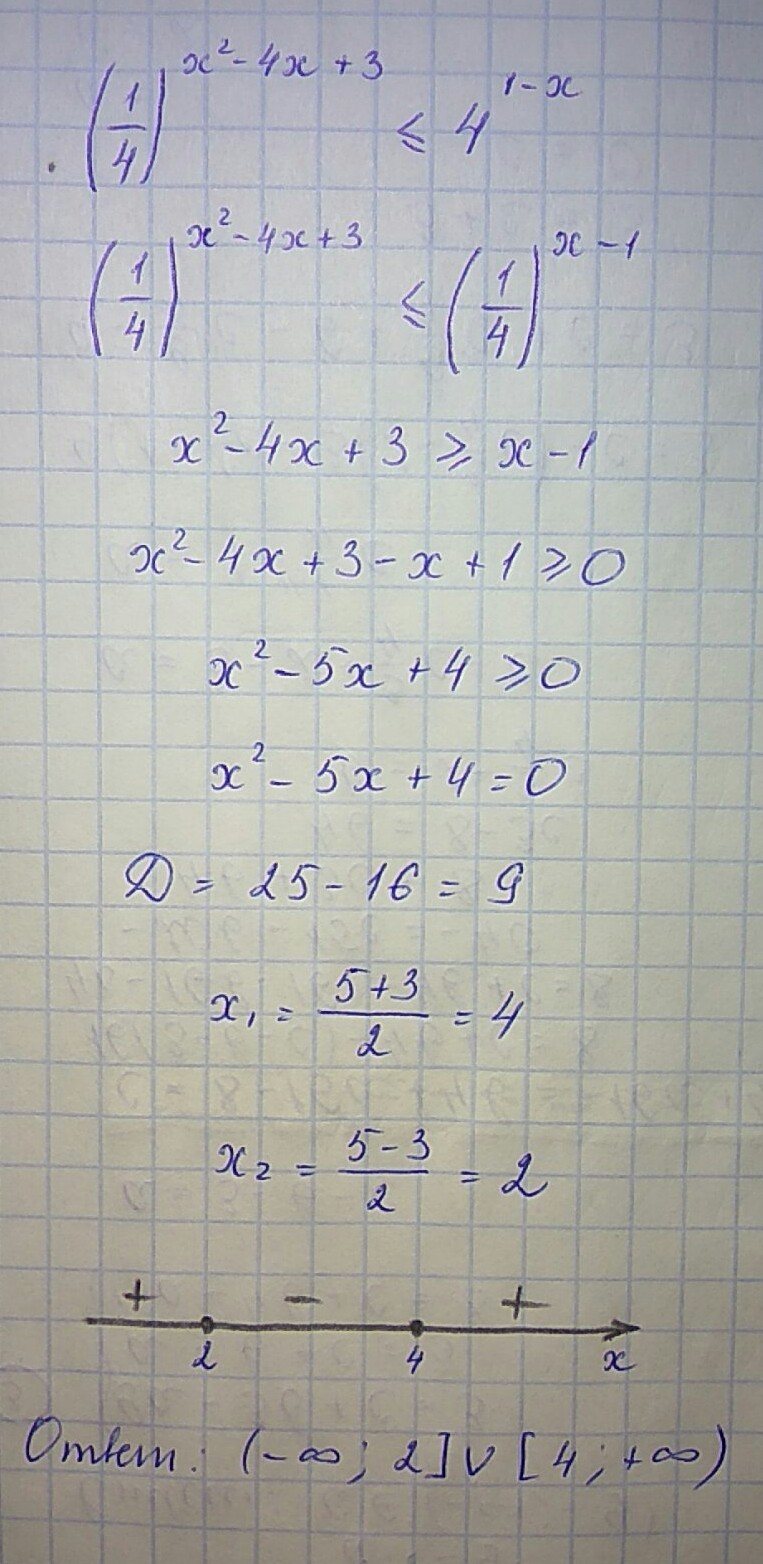 (1/4)^(x²-4x+3) ⩽ 4^(1-x)
(1/4)^(x²-4x+3) ⩽ (1/4)^(x-1)
x²-4x+3 ⩾ x-1
x²-4x+3-x+1 ⩾ 0
x²-5x+4 ⩾ 0
x²-5x+4=0
D = 25-16 = 9
x₁ = (5+3)/2 = 4
x₂ = (5-3)/2 = 2
+ - +
2 4 x
Ответ: (-∞; 2]∪[4; +∞)